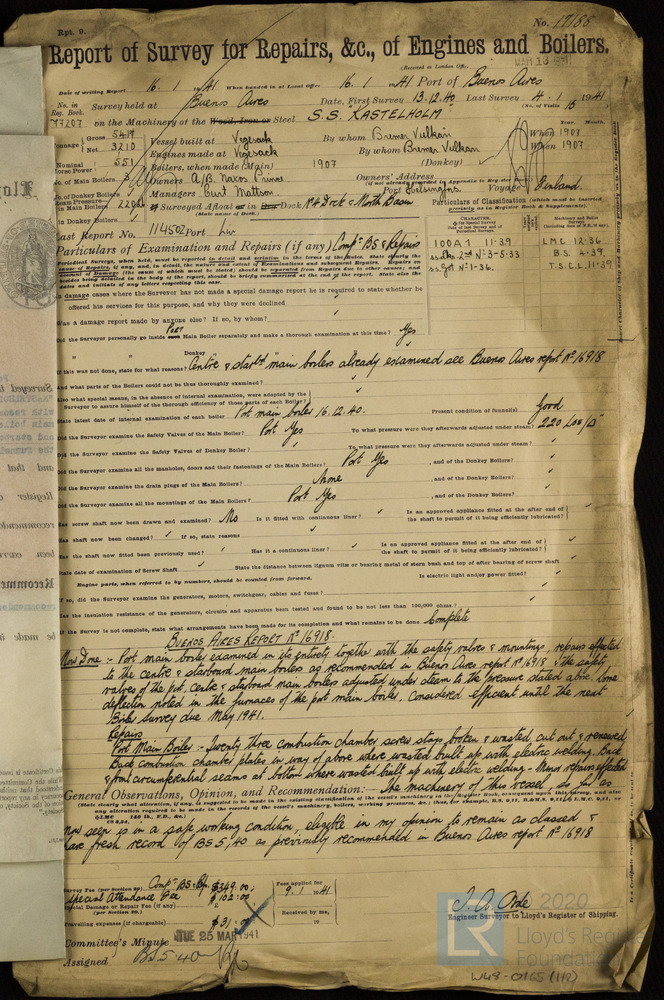 Rpt. 9.
No. 17188
Report of Survey for Repairs, &c., of Engines and Boilers.
(Received at London Office
MAR 13 1941
Date of writing Report 16. 1 1941 When handed in at Local Office 16. 1 1941 Port of Buenos Aires
No. in Reg. Book. Survey held at Buenos Aires Date, First Survey 13.12.40 Last Survey 4.1 1941
(No. of Visits 13
77207 on the Machinery of the Wood, Iron or Steel S.S. KASTELHOLM
Gross 5417
Tonnage
Net 3210
Vessel built at Vegesack By whom Bremer Vulkan When 1907
Year. Month.
Engines made at Vegesack By whom Bremer Vulkan When 1907
Nominal Horse Power 551
Boilers, when made (Main) 1907 (Donkey)
No. of Main Boilers 3
Owners A/B Naxos Prince Owners' Address
(if not already recorded in Appendix to Reg
No. of Donkey Boilers
Managers Curt Mattson Port Helsingfors. Voyage Finland.
Steam Pressure in Main Boilers 220 lb
If Surveyed Afloat or in Dry Dock No 4 Dock & North Basin
(State name of Dock.)
in Donkey Boilers
Particulars of Classification (which must be inserted precisely as in Register Book & Supplements).
Last Report No. 114502 Port Liv
Particulars of Examination and Repairs (if any) Compt BS & Repairs
100A1 11.39
ss 2nd No 3-5.33
No 1-36.
L.M.C. 12.36
B.S. 4.39
T.S.C.L. 11.39
Periodical Surveys, when held, must be reported in detail and seriatim in the terms of the Rules. State clearly the
In damage cases where the Surveyor has not made a special damage report he is required to state whether he
offered his services for this purpose, and why they were declined
Was a damage report made by anyone else? If so, by whom?
Did the Surveyor personally go inside each PORT Main Boiler separately and make a thorough examination at this time? Yes
" " Donkey " "
If this was not done, state for what reasons? Centre & starbd main boilers already examined see Buenos Aires report No 16918
And what parts of the Boilers could not be thus thoroughly examined?
Also what special means, in the absence of internal examination, were adopted by the
Surveyor to assure himself of the thorough efficiency of those parts of each Boiler?
State latest date of internal examination of each boiler Port main boiler 16.12.40. Present condition of funnel(s) Good
Did the Surveyor examine the Safety Valves of the Main Boiler? Port Yes To what pressure were they afterwards adjusted under steam? 220 Lbs/□"
Did the Surveyor examine the Safety Valves of Donkey Boiler? To what pressure were they afterwards adjusted under steam?
Did the Surveyor examine all the manholes, doors and their fastenings of the Main Boilers? Port Yes , and of the Donkey Boilers?
Did the Surveyor examine the drain plugs of the Main Boilers? None , and of the Donkey Boilers?
Did the Surveyor examine all the mountings of the Main Boilers? Port Yes , and of the Donkey Boilers?
Has screw shaft now been drawn and examined? No Is it fitted with continuous liner? Is an approved appliance fitted at the after end of
the shaft to permit of it being efficiently lubricated?
Has shaft now been changed? If so, state reasons
Has the shaft now fitted been previously used? Has it a continuous liner? Is an approved appliance fitted at the after end of
the shaft to permit of it being efficiently lubricated?
State date of examination of Screw Shaft State the distance between lignum vitæ or bearing metal of stern bush and top of after bearing of screw shaft
Engine parts, when referred to by numbers, should be counted from forward. Is electric light and/or power fitted?
If so, did the Surveyor examine the generators, motors, switchgear, cables and fuses?
Has the insulation resistance of the generators, circuits and apparatus been tested and found to be not less than 100,000 ohms?
If the Survey is not complete, state what arrangements have been made for its completion and what remains to be done Complete
BUENOS AIRES REPORT No 16918.
Now Done :- Port main boiler examined in its entirety together with the safety valves & mountings, repairs effected
to the centre & starboard main boilers as recommended in Buenos Aires report No 16918 & the safety
valves of the port, centre & starboard main boilers adjusted under steam to the pressure stated above. Some
deflection noted in the furnaces of the port main boiler. Considered efficient until the next
Boiler Survey due May 1941.
Repairs
Port Main Boiler :- Twenty three combustion chamber screw stays broken & wasted cut out & renewed.
Back combustion chamber plates in way of above where wasted built up with electric welding. Back
& front circumferential seams at bottom where wasted built up with electric welding - Minor repairs effected
General Observations, Opinion, and Recommendation :- The machinery of this vessel, so far as
(State clearly what alteration, if any, is suggested to be made in the existing classification of the vessel's machinery in the Register Book
now seen is in a safe working condition, eligible in my opinion to remain as classed &
have fresh record of BS 5,40 as previously recommended in Buenos Aires report No 16918
Survey Fee (per Section 29.) Compt BS & Rp. $349.00
Special Attendance Fee $102.00
Special Damage or Repair Fee (if any)
(per Section 29.)
Travelling expenses (if chargeable) $31.00
Fees applied for 9.1.1941.
Received by me,
19
Engineer Surveyor to Lloyd's Register of Shipping.
Committee's Minute TUE 25 MAR 1941
Assigned BS 5.40
LR
© 2020
Lloyd's Register
Foundation
W48-0165 (1/2)